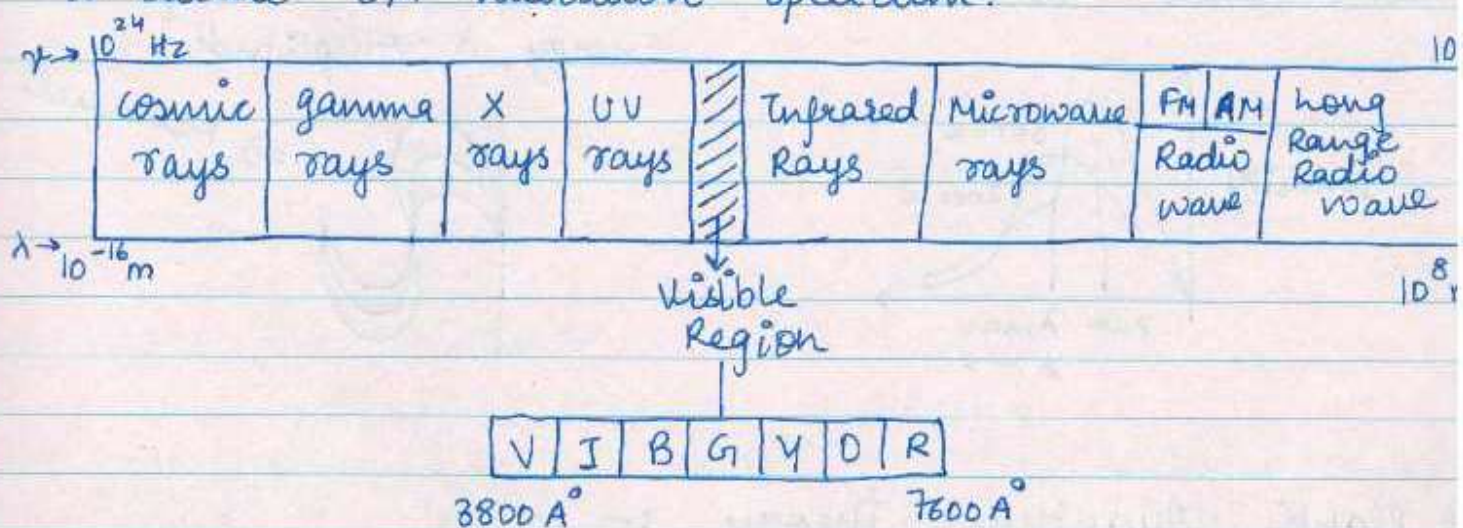 ν → 10²⁴ Hz 10
cosmic rays gamma rays X rays UV rays Infrared Rays Microwave rays FM AM Radio wave Long Range Radio wave
λ → 10⁻¹⁶ m 10⁸
Visible
Region
V I B G Y O R
3800 A° 7600 A°